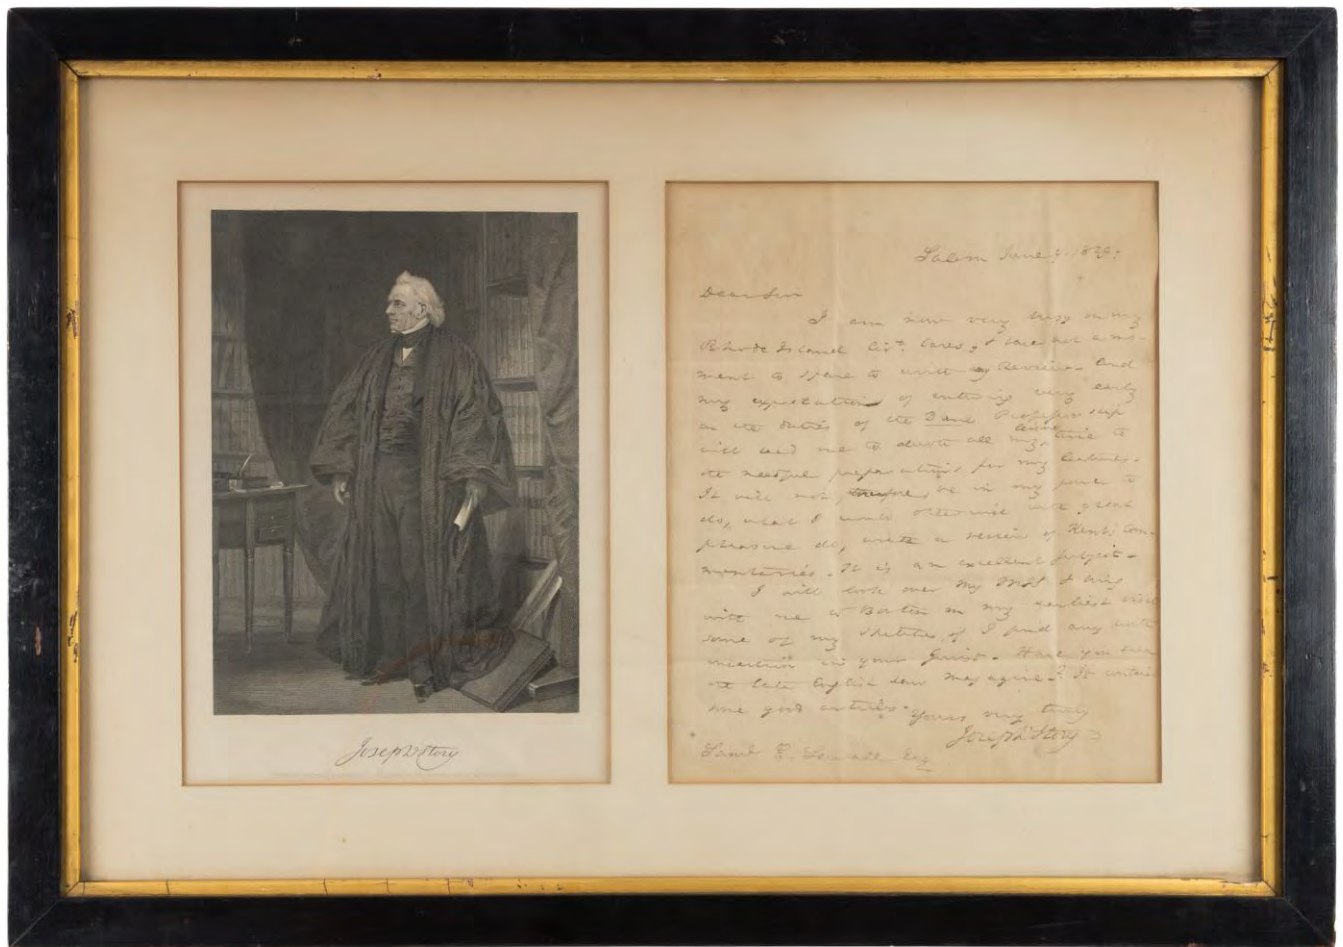 Joseph Story
Salem June 9. 1829.
Dear Sir
I am now very busy on my
Rhode Island Cir.t Cases, & have not a mo-
ment to spare to write a Review. And
my expectations of entering very early
on the duties of the Dane Professorship
will lead me to devote all my leisure time to
the needful preparations for my Lectures.
It will not, therefore, be in my power to
do, what I would otherwise with great
pleasure do, write a review of Kent's Com-
mentaries. It is an excellent subject.
I will look over my MSS & bring
with me to Boston on my earliest visit
some of my sketches, if I find any worth
insertion in your Jurist. Have you seen
the late English Law Magazine? It contains
some good articles.
Yours very truly
Joseph Story
Saml E. Sewall Esq